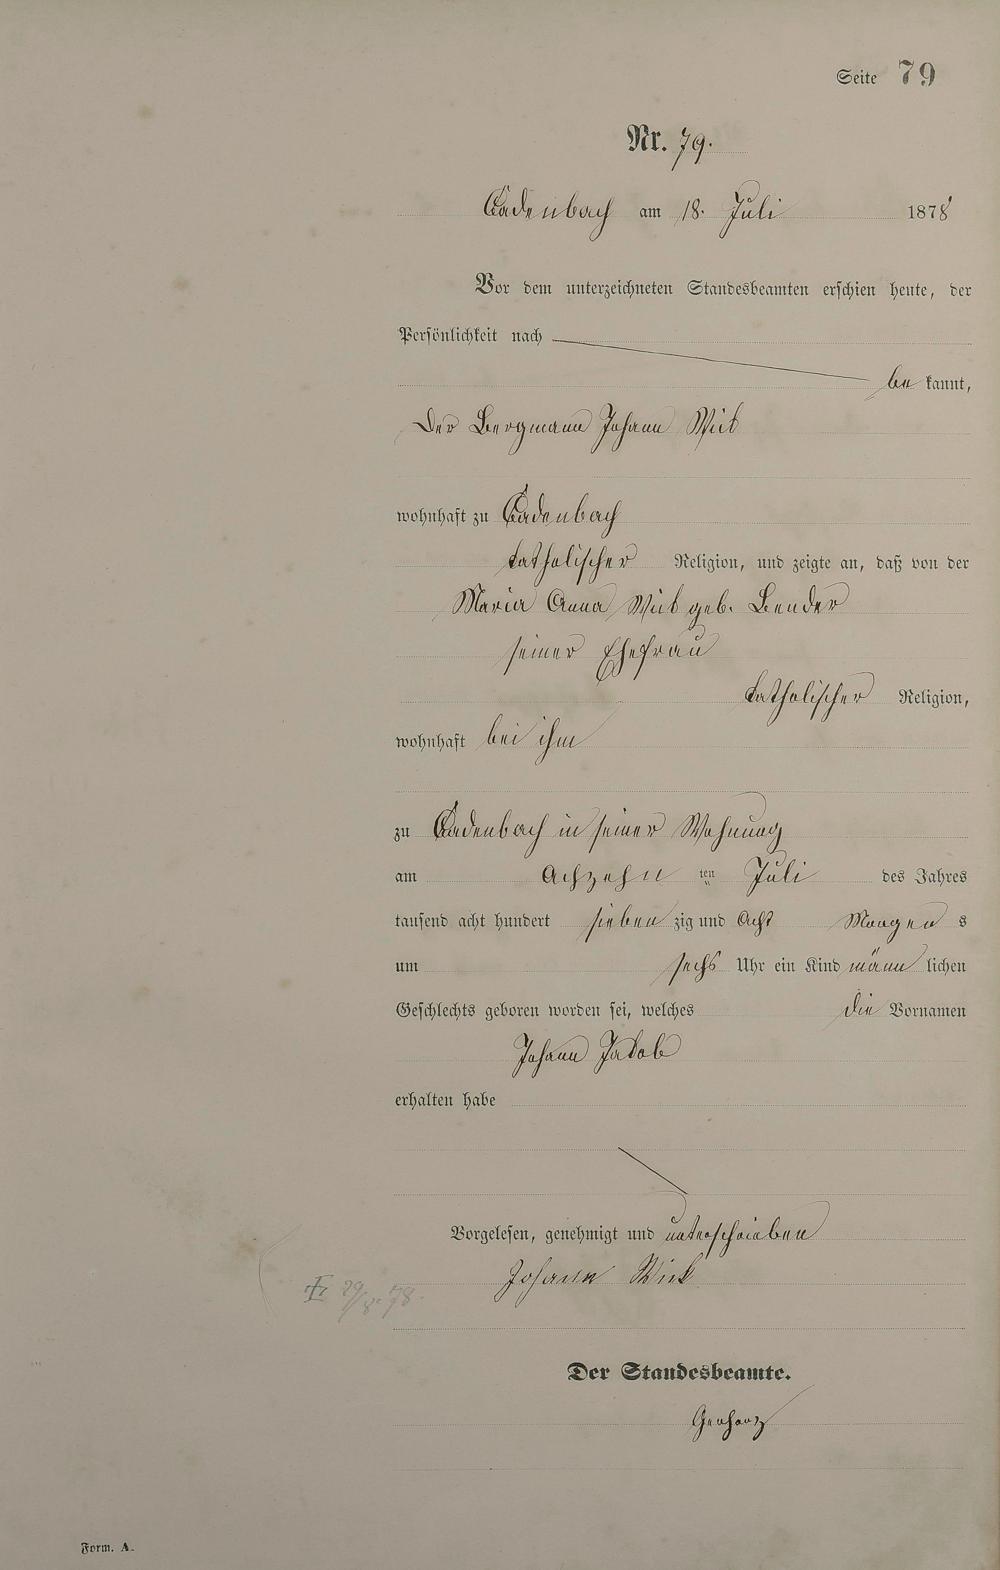 Seite 79
Nr. 79.
Cadenbach am 18. Juli 1878
Vor dem unterzeichneten Standesbeamten erschien heute, der
Persönlichkeit nach
be kannt,
der Bergmann Johann
wohnhaft zu Cadenbach
katholischer Religion, und zeigte an, daß von der
Maria Anna geb. Bender
seiner Ehefrau
katholischer Religion,
wohnhaft bei ihm
zu Cadenbach in seiner Wohnung
am Achzehn ten Juli des Jahres
tausend acht hundert sieben zig und Acht Morgen s
um sechs Uhr ein Kind männ lichen
Geschlechts geboren worden sei, welches die Vornamen
Johann Jakob
erhalten habe
Vorgelesen, genehmigt und unterschrieben
Johann
29/8. 78.
Der Standesbeamte.
Form. A.